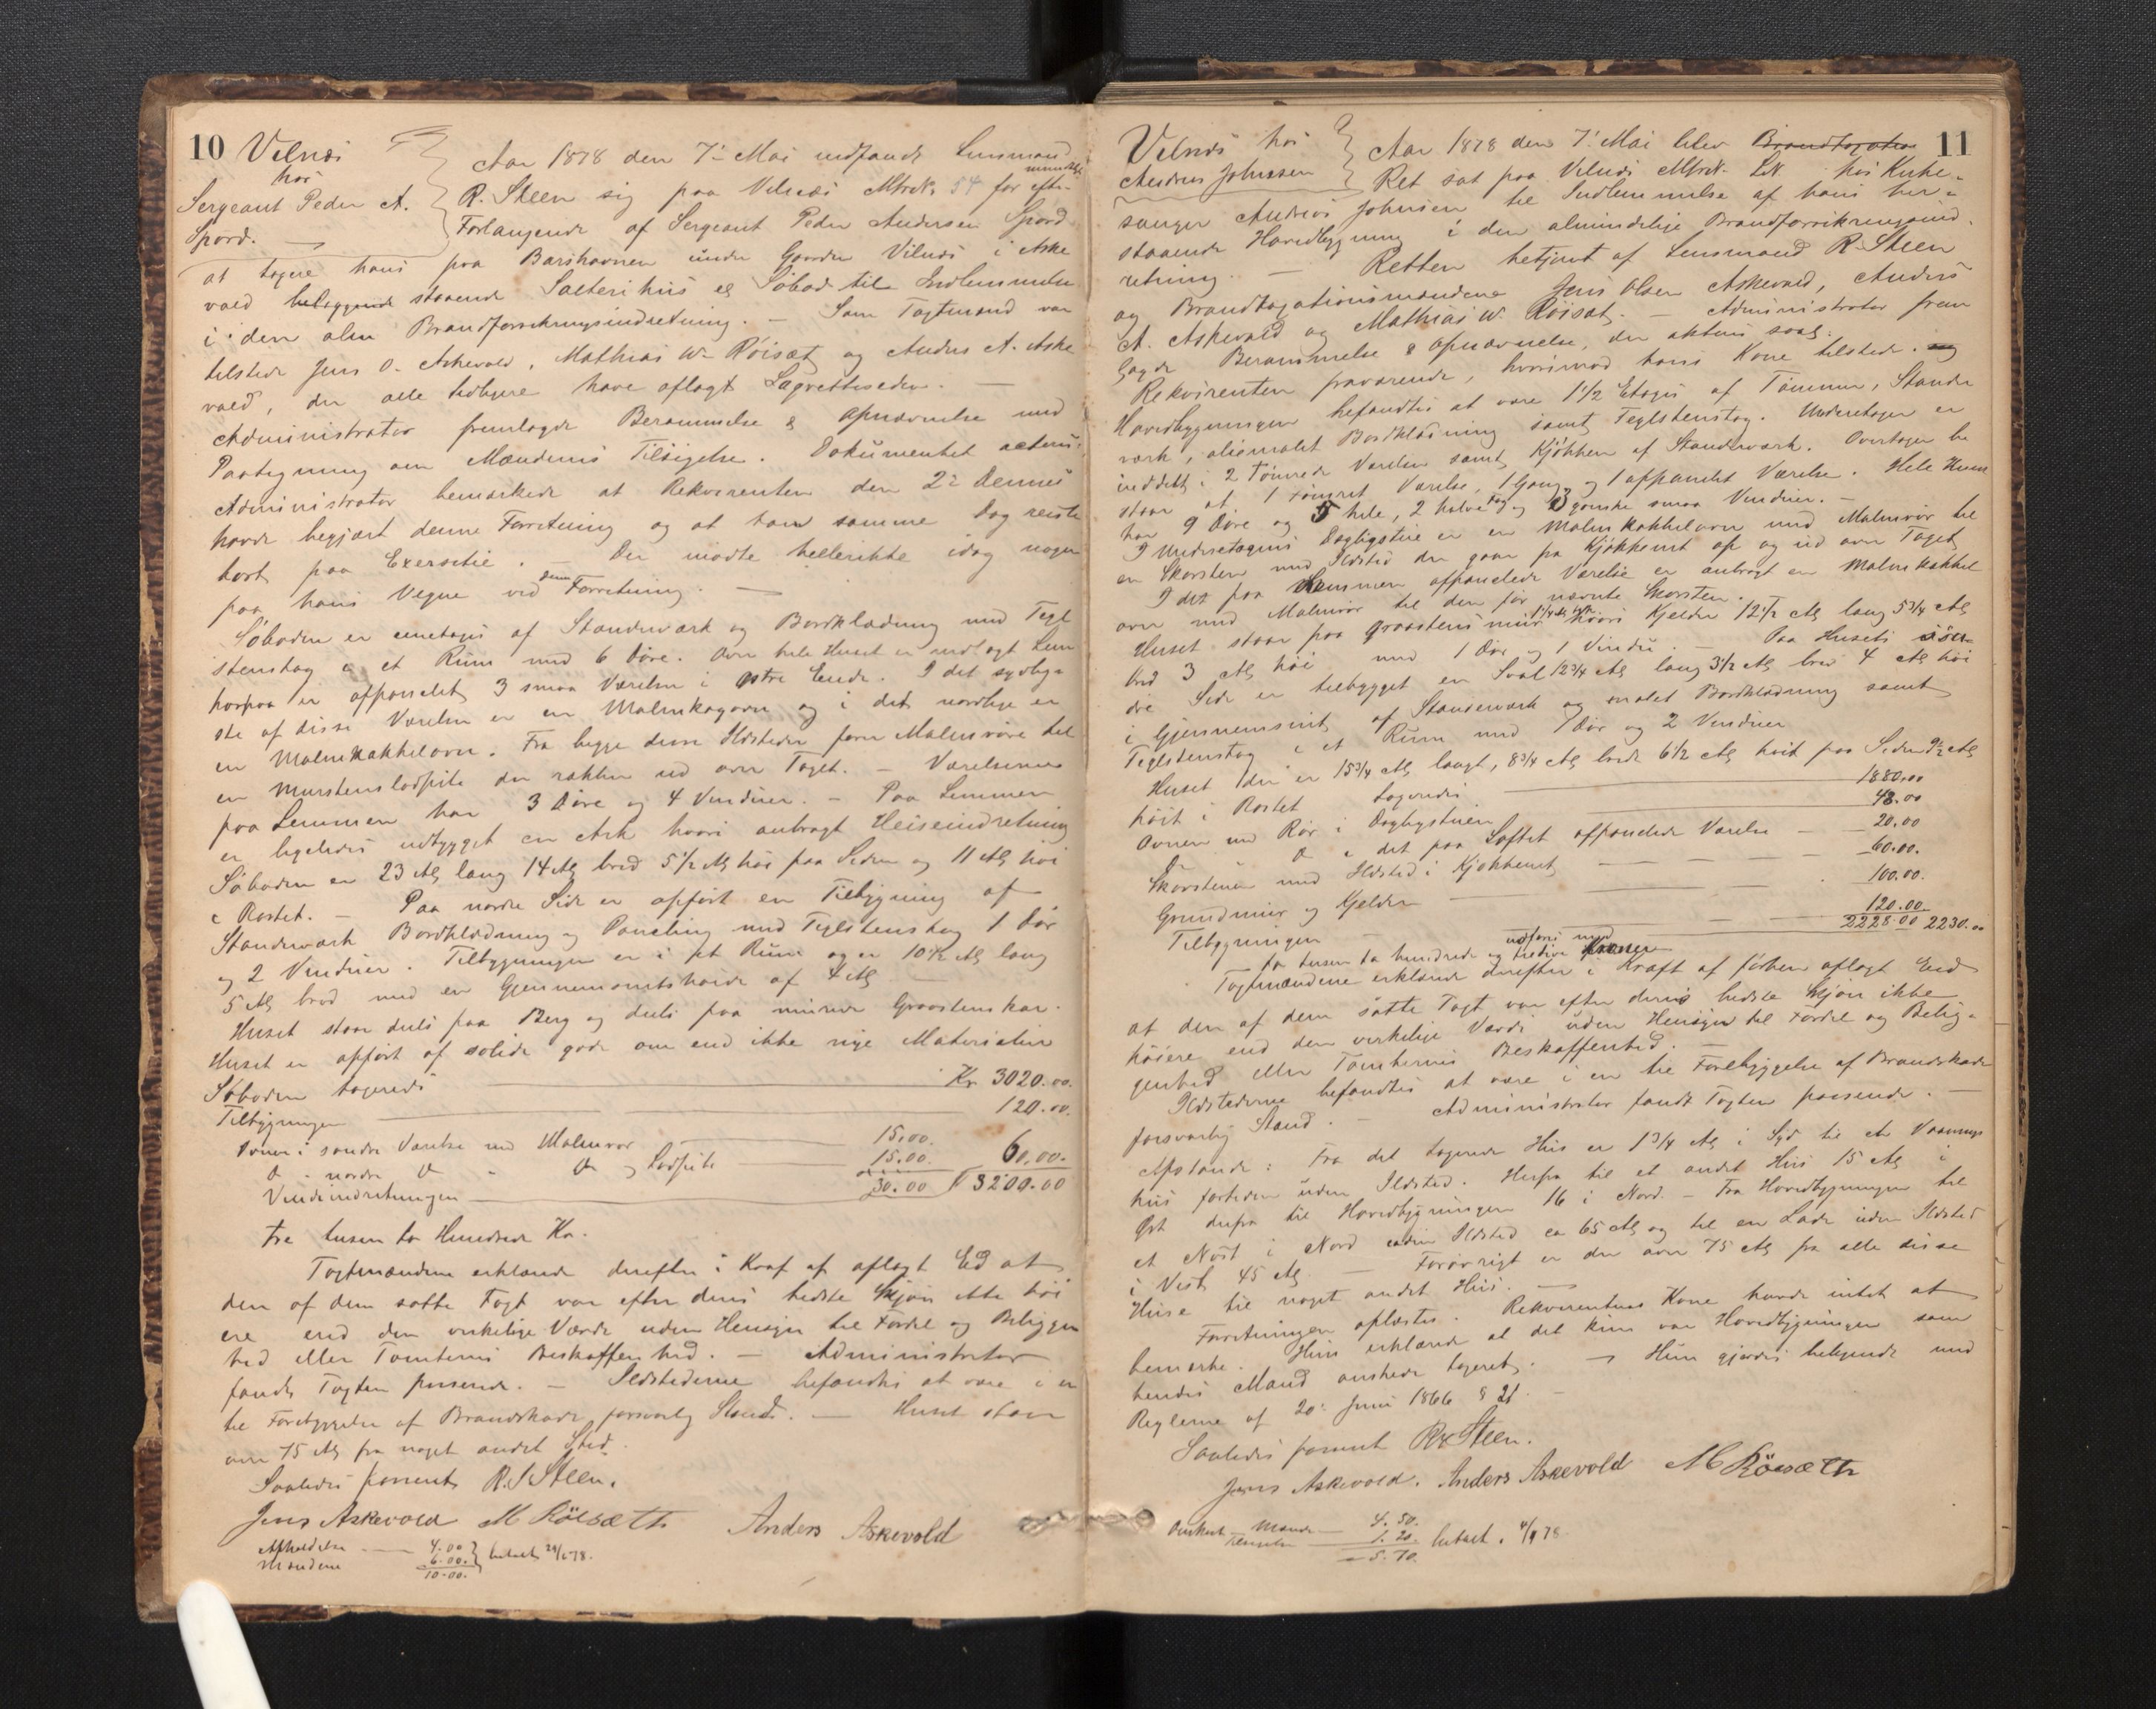 10 Velnæs
hos
Sergeant Peder A.
Spord.
Aar 1878 den 7de Mai indfandt Lensmand
R. Steen sig paa Velnæs Mtrk. 54 for efter mundtlig
Forlangende af Sergeant Peder Andersen Spord
at taxere hans paa Barshavnen under Gaarden Vilnæs i Aske
vold beliggende staaende Salterihus eg Søbod til Indlemmelse
i den alm Brandforsikringsindretning. — Som Taxtmænd var
tilstede Jens O. Askevold, Mathias W. Röisæt og Anders A. Aske
vold, der alle tidligere have aflagt Lagrettesed. —
Administrator fremlagde Berammelse & Opnævnelse med
Paategning om Mændenes Tilsigelse. Dokumentet acteres.
Administrator bemærkede at Rekvirenten den 2den Dennes
havde begjært denne Forretning og at han samme Dag reiste
bort paa Exersitie. — Der mødte hellerikke idag nogen
paa hans Vegne ved denne Forretning. —
Søboden er eenetages af Standerværk og Bordklædning med Tegl
stenstag i et Rum med 6 Döre. Over hele Huset er indlagt Lem
hvorpaa er afpanelet 3 smaa Værelser i østre Ende. I det sydlig-
ste af disse Værelser er en Malmkagovn og i det nordlige er
en Malmkakkelovn. Fra begge disse Ildsteder fører Malmrøre til
en Murstenslodpibe der rækker ud over Taget. — Værelserne
paa Lemmen har 3 Döre og 4 Vinduer. — Paa Lemmen
er ligeledes udbygget en Ark hvori anbragt Heiseindretning
Søboden er 23 Al lang 14 Al bred 5 1/2 Al høi paa Siden og 11 Al høi
i Røstet. — Paa nordre Side er opført en Tilbygning af
Standerværk Bordklædning og Paneling med Teglstenstag 1 Dör
og 2 Vinduer. Tilbygningen er i et Rum og er 10 1/2 Al lang
5 Al bred med en Gjennemsnitshøide af 4 Al —
Huset staar dels paa Berg og dels paa murede Graastenskar.
Huset er opført af solide gode om end ikke nye Materialier
Søboden taxeredes — Kr. 3020.00.
Tilbygningen — 120.00.
Ovnen i søndre Værelse med Malmrør — 15.00.
Do - nordre Do - Do og Lodpibe 15.00. 60.00.
Vindeindretningen — 30.00 3200.00
Tre tusen to Hundrede Kr.
Taxtmændene erklærede derefter i Kraf af aflagt Ed at
den af dem satte Taxt var efter deres bedste Skjøn ikke høi
ere end den virkelige Værdi uden Hensyn til Fordel og Beliggen
hed eller Tomternes Beskaffenhed. — Administrator
fandt Taxten passende. — Ildstederne befandtes at være i en
til Forebyggelse af Brandskade forsvarlig Stand. — Huset staar
over 75 Al fra noget andet Sted.
Saaledes passeret R. S Steen.
Jens Askevold M Röisæth Anders Askevold
Afholdelse — 4.00
Mændene 6.00. betalt 29/5 78.
10.00.
Velnæs hos
Andreas Johnsen
11
Aar 1878 den 7de Mai blev Brandtaxation
Ret sat paa Vilnæs Mtrk. hos Kirke-
sanger Andreas Johnsen til Indlemmelse af hans her-
staaende Hovedbygning i den almindelige Brandforsikringsind-
retning. — Retten betjent af Lensmand R. Steen
og Brandtaxationsmændene Jens Olsen Askevold, Anders
A. Askevold og Mathias W. Röisæt. — Administrator frem
lagde Berammelse & Opnævnelse, der akteres saal.
Rekvirenten fraværende, hvorimod hans Kone tilstede.
Hovedbygningen befandtes at være 1 1/2 Etages af Tømmer, Stander
værk, oliemalet Bordklædning samt Teglstenstag. Underetagen er
inddelt i 2 Tømrede Værelser samt Kjøkken af Standerværk. Overtagen be
staar af 1 Tømret Værelse, 1 Gang og 1 afpanelet Værelse. Hele Huset
har 9 Döre og 5 hele, 2 halve Fag og 3 ganske smaa Vinduer. —
I Underetagens Dagligstue er en Malmkakkelovn med Malmrör til
en Skorsten med Ildsted der gaar fra Kjøkkenet op og ud over Taget
I det paa Lemmen afpanelede Værelse er anbragt en Malmkakkel
ovn med Malmrör til den før nævnte Skorsten.
Huset staar paa Graastensmur 1 1/4 Al høi hvori Kjelder 12 1/2 Al lang 5 3/4 Al
bred 3 Al høi med 1 Dör og 1 Vindu. — Paa Husets søn-
dre Side er tilbygget en Sval 12 3/4 Al lang 3 1/2 Al bred 4 Al høi
i Gjennemsnit af Standerværk og malet Bordklædning samt
Teglstenstag i et Rum med 1 Dör og 2 Vinduer
Huset der er 15 3/4 Al langt, 8 3/4 Al bredt 6 1/2 Al höit paa Siden 9 1/2 Al
höit i Røstet taxeredes — 1880.00
Ovnen med Rör i Dagligstuen — 48.00
Do Do i det paa Loftet afpanelede Værelse — 20.00
Skorstenen med Ildsted i Kjøkkenet — 60.00.
Grundmur og Kjelder — 100.00.
Tilbygningen — 120.00.
2228.00 2230.00
udføres med
to tusen to hundrede og tredive Kroner
Taxtmændene erklærede derefter i Kraft af förhen aflagt Eed
at den af dem satte Taxt var efter deres bedste Skjøn ikke
höiere end den virkelige Værdi uden Hensyn til Fordel og Belig-
genhed eller Tomternes Beskaffenhed. —
Ildstederne befandtes at være i en til Forebyggelse af Brandskade
forsvarlig Stand. — Administrator fandt Taxten passende. —
Afstande: Fra det taxerede Hus er 1 3/4 Al i Syd til et Vaanings
hus fortiden uden Ildsted. Herfra til et andet Hus 15 Al i
Øst derfra til Hovedbygningen 16 i Nord. — Fra Hovedbygningen til
et Nøst i Nord uden Ildsted ca 65 Al og til en Lade uden Ildsted
i Vest 45 Al — Forøvrigt er der over 75 Al fra alle disse
Huse til noget andet Hus. —
Forretningen oplæstes. Rekvirentens Kone havde intet at
bemærke. Hun erklærede at det kun var Hovedbygningen som
hendes Mand ønskede taxeret. — Hun gjordes bekjendt med
Reglerne af 20de Juni 1866 § 21. —
Saaledes passeret R S Steen.
Jens Askevold. Anders Askevold M Röisæth
Mænd — 4.50.
1.20 betalt.
5.70.